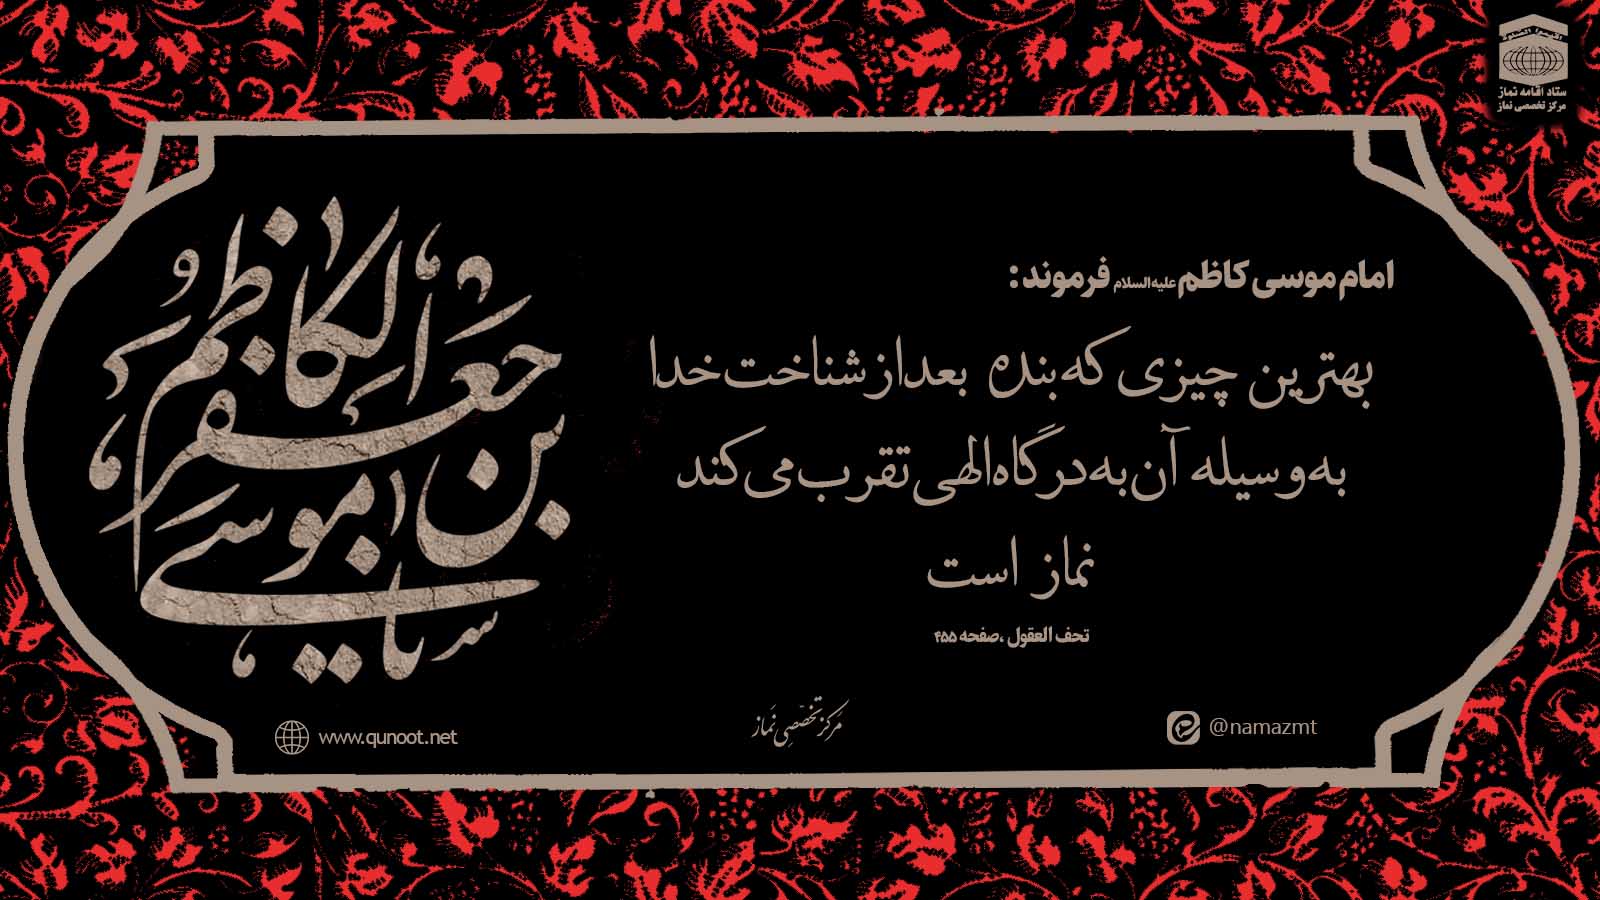 اقیموا الصلوة
ستاد اقامه نماز
مرکز تخصصی نماز
امام موسی کاظم علیه‌السلام فرموند:
بهترین چیزی که بنده بعد از شناخت خدا
به وسیله آن به درگاه الهی تقرب می‌کند
نماز است
تحف العقول، صفحه ۴۵۵
یا موسی بن جعفر الکاظم
@namazmt
مرکز تخصصی نماز
www.qunoot.net